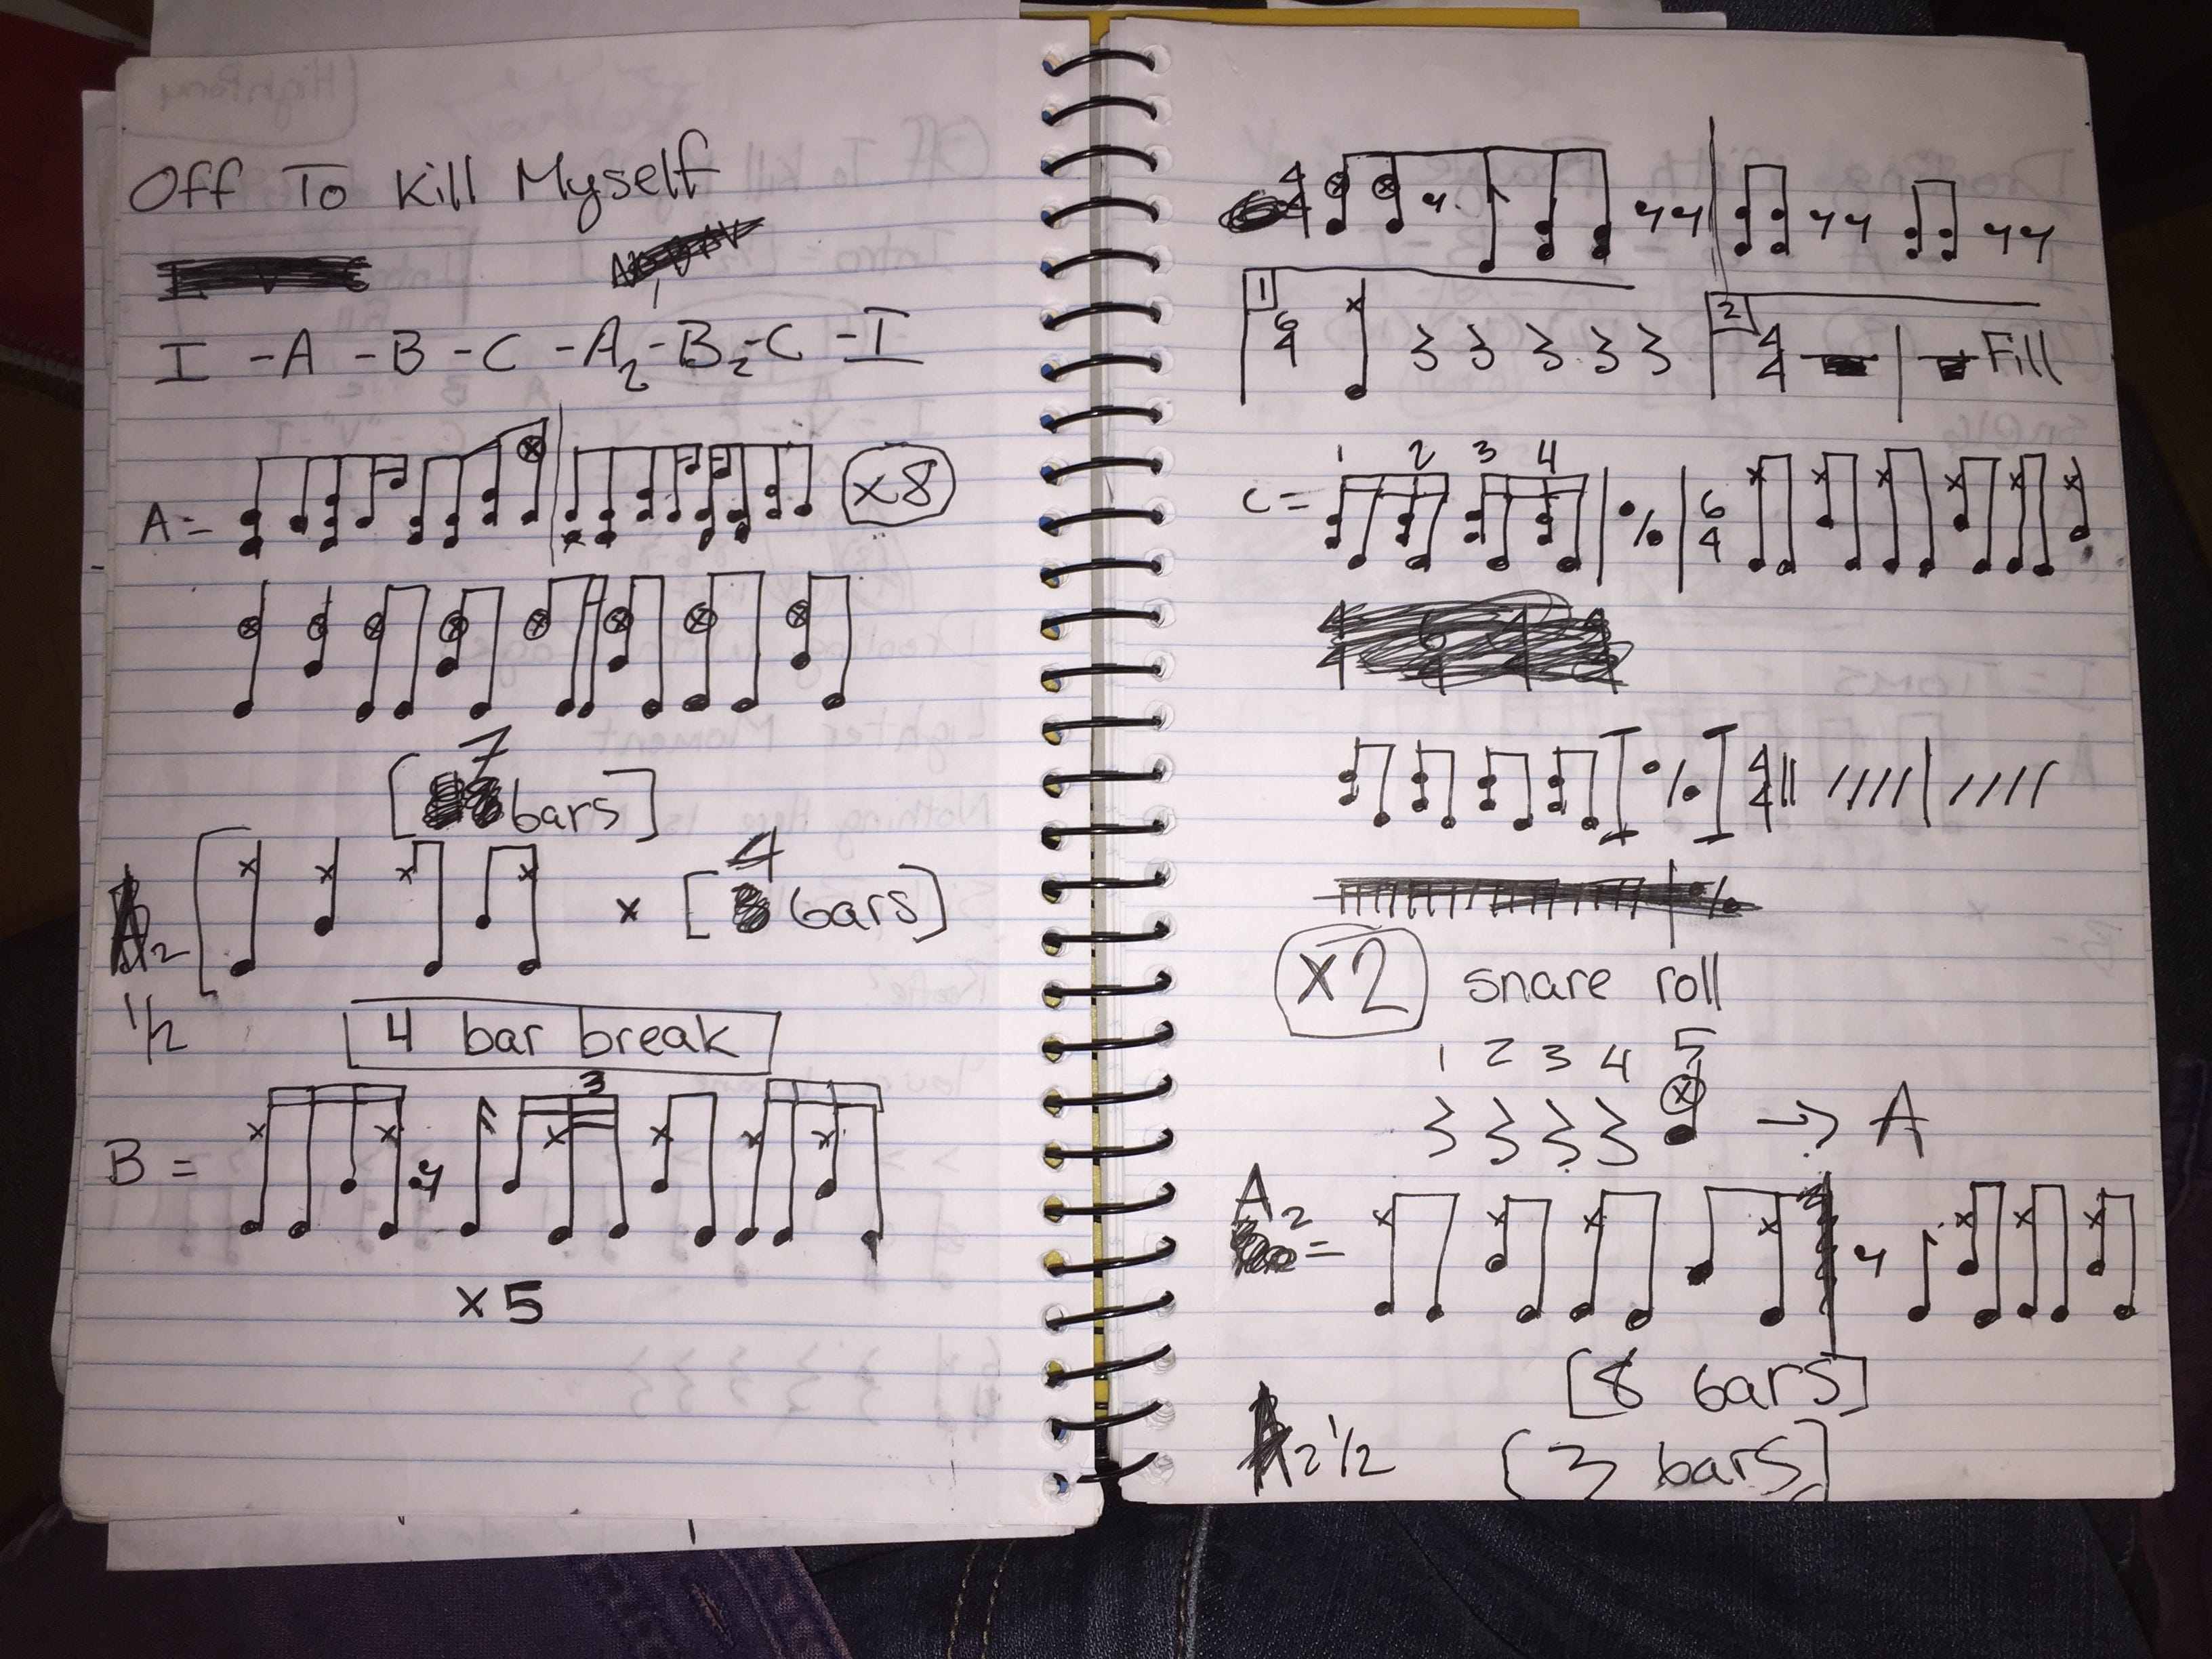 Off To Kill Myself
I - A - B - C - A2 - B2 - C - I
A = x8
7
[bars]
4
A2 x [bars]
1/2 4 bar break
3
B =
x5
4
4
1 2
6 4
4 4 Fill
1 2 3 4
C = % 6
4
% 4
4
x2 snare roll
1 2 3 4 5
→ A
A2
=
[8 bars]
A2 1/2 [3 bars]